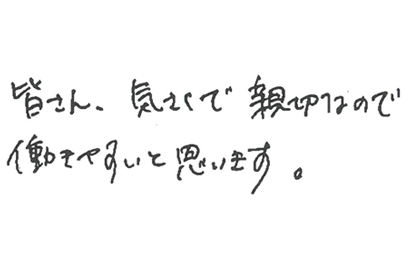 皆さん、気さくで親切なので
働きやすいと思います。